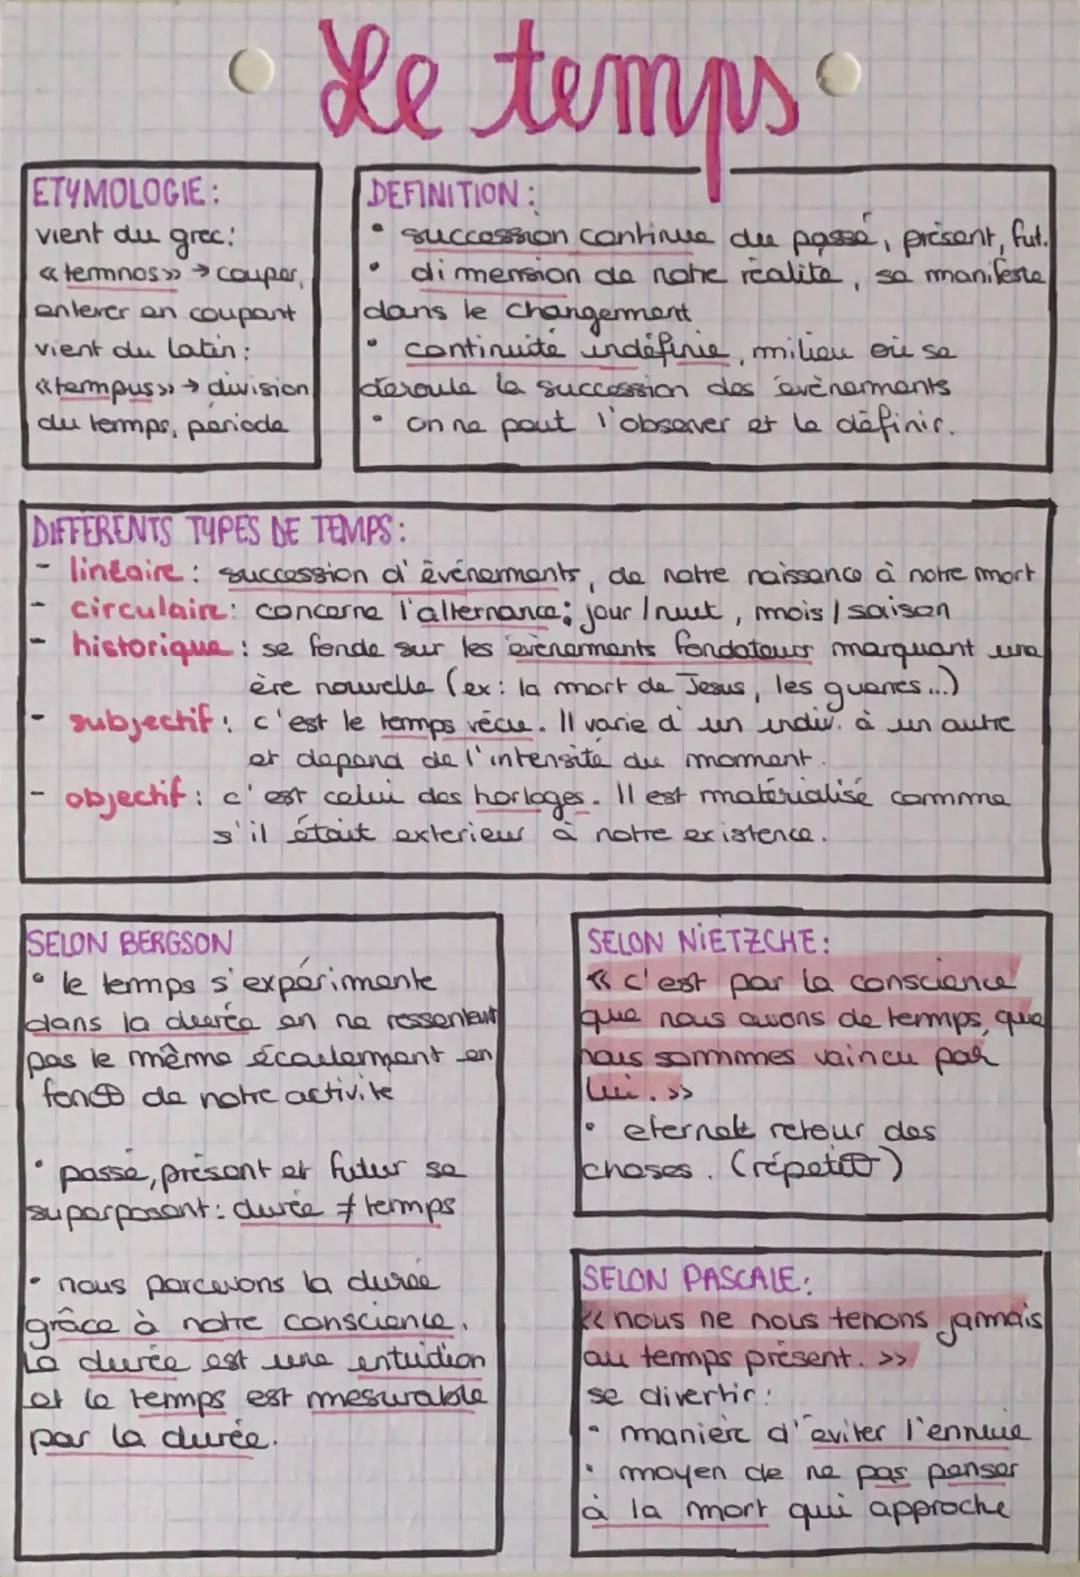 Le temps
ETYMOLOGIE :
vient du grec :
«temnos» → couper,
enlever en coupant
vient du latin :
«tempus» → division
du temps, période
DEFINITION :
• succession continue du passé, présent, fut.
• dimension de notre réalité, se manifeste
dans le changement
• continuité indéfinie, milieu où se
déroule la succession des évènements
• on ne peut l'observer et le définir.
DIFFÉRENTS TYPES DE TEMPS :
- linéaire : succession d'évènements, de notre naissance à notre mort
- circulaire : concerne l'alternance ; jour / nuit, mois / saison
- historique : se fonde sur les évènements fondateurs marquant une
ère nouvelle (ex : la mort de Jesus, les guerres...)
- subjectif : c'est le temps vécu. Il varie d'un indiv. à un autre
et depend de l'intensité du moment.
- objectif : c'est celui des horloges. Il est matérialisé comme
s'il était exterieur à notre existence.
SELON BERGSON
• le temps s'expérimente
dans la durée en ne ressentant
pas le même écoulement en
fonct° de notre activité
• passé, présent et futur se
superposent : durée ≠ temps
• nous percevons la durée
grâce à notre conscience.
La durée est une intuidion
et le temps est mesurable
par la durée.
SELON NIETZCHE :
« c'est par la conscience
que nous avons de temps, que
nous sommes vaincu par
lui. »
• eternel retour des
choses. (répétit°)
SELON PASCALE :
« nous ne nous tenons jamais
au temps présent. »
se divertir :
• manière d'éviter l'ennuie
• moyen de ne pas penser
à la mort qui approche